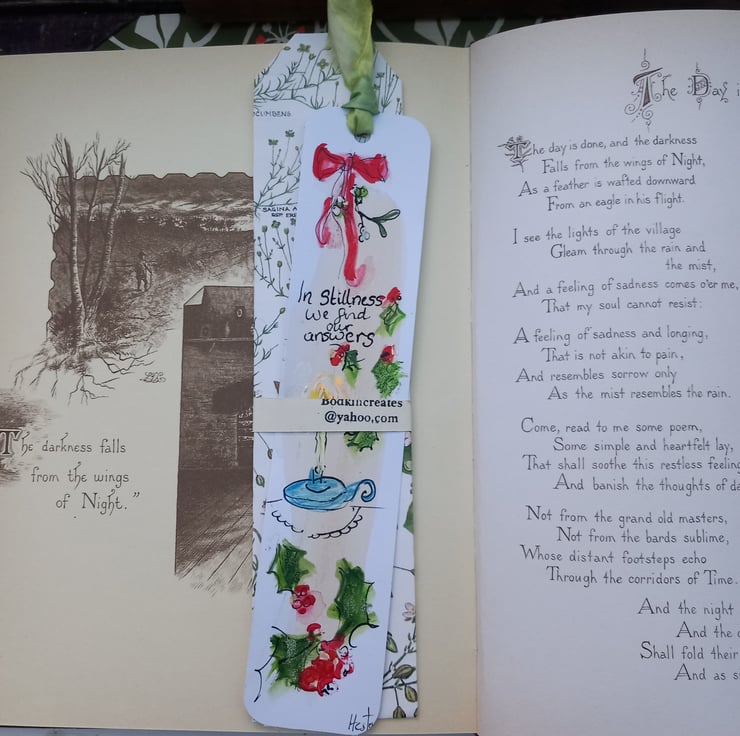 The darkness falls
from the wings
of Night."
CUMBENS
SAGINA A
In Stillness
we find
our
answers
Bodkincreates
@yahoo,com
The Day i
The day is done, and the darkness
Falls from the wings of Night,
As a feather is wafted downward
From an eagle in his flight.
I see the lights of the village
Gleam through the rain and
the mist,
And a feeling of sadness comes o'er me,
That my soul cannot resist:
A feeling of sadness and longing,
That is not akin to pain,
And resembles sorrow only
As the mist resembles the rain.
Come, read to me some poem,
Some simple and heartfelt lay,
That shall soothe this restless feeling
And banish the thoughts of da
Not from the grand old masters,
Not from the bards sublime,
Whose distant footsteps echo
Through the corridors of Time.
And the night
And the
Shall fold their
And as s